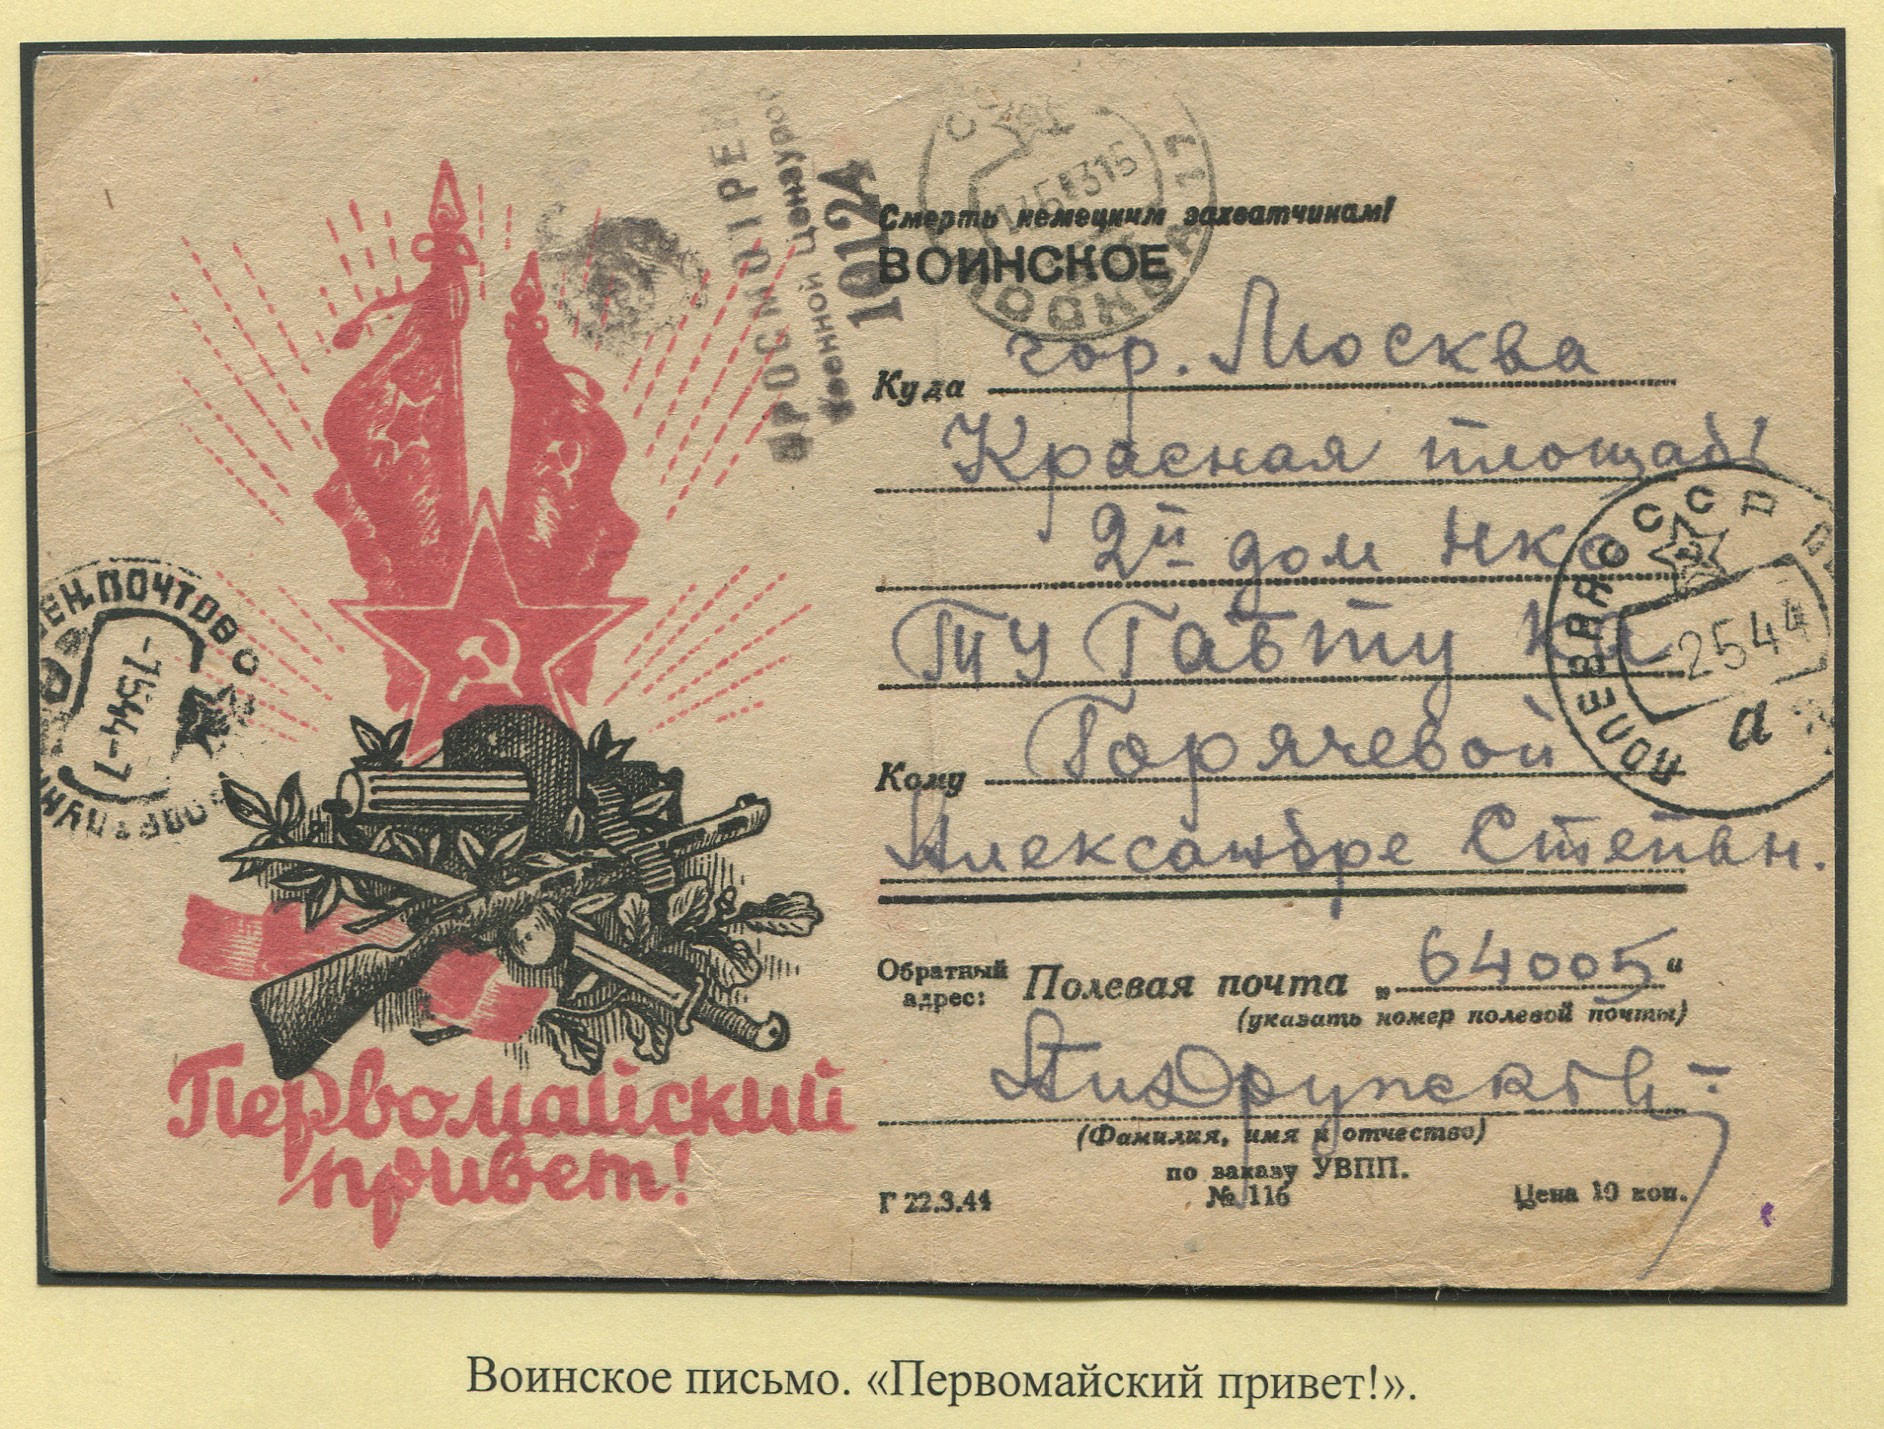 Военной Цензурой
10124
Смерть немецким захватчикам!
ВОИНСКОЕ
МОСКВА
Куда гор. Москва
Красная площадь
2й дом НКО
ТУ ГАБТУ КА
Кому Горячевой
Александре Степан.
ПОЛЕВАЯ СССР
2544
а
-7544-7
Обратный адрес: Полевая почта „64005“
(указать номер полевой почты)
(Фамилия, имя и отчество)
по заказу УВПП.
Г 22.3.44 № 116 Цена 10 коп.
Первомайский
привет!
Воинское письмо. «Первомайский привет!».